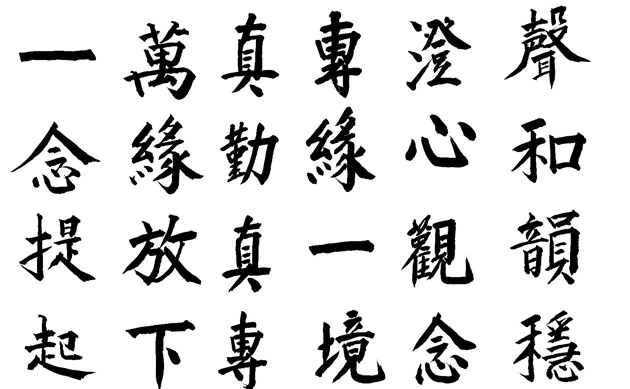 聲和韻穩
澄心觀念
專緣一境
真勤真專
萬緣放下
一念提起